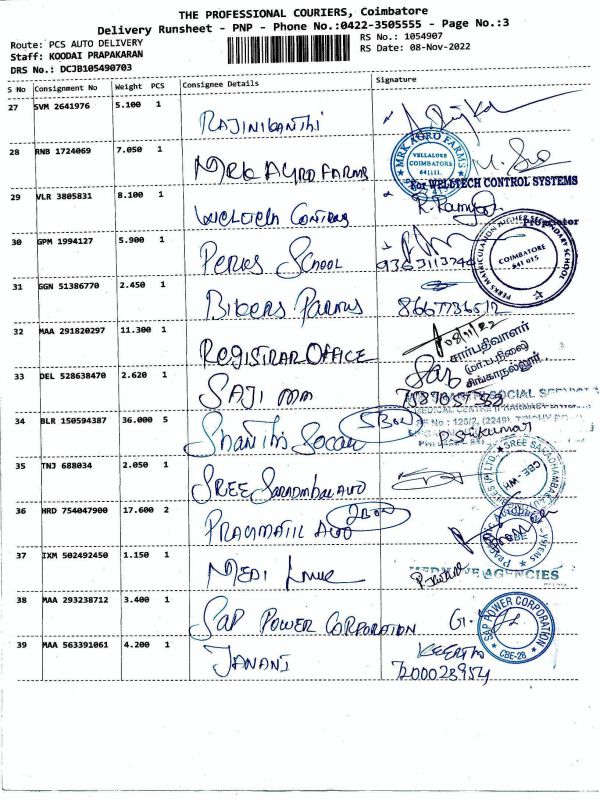 THE PROFESSIONAL COURIERS, Coimbatore
Delivery Runsheet - PNP - Phone No.:0422-3505555 - Page No.:3
Route: PCS AUTO DELIVERY RS No.: 1054907
Staff: KOODAI PRAPAKARAN RS Date: 08-Nov-2022
DRS No.: DCJB105490703
S No Consignment No Weight PCS Consignee Details Signature
27 SVM 2641976 5.100 1 RAJINIKANTHI
28 RNB 1724069 7.050 1 MRK AGRO FARMS
MRK AGRO FARMS VELLALORE COIMBATORE 641111.
For WELLTECH CONTROL SYSTEMS
29 VLR 3805831 8.100 1 R. Ramya
Proprietor
30 GPM 1994127 5.900 1 PERKS SCHOOL
PERKS MATRICULATION HIGHER SECONDARY SCHOOL COIMBATORE 641 015
31 GGN 51386770 2.450 1 BIKERS 8667736512
32 MAA 291820297 11.300 1 REGISTRAR OFFICE 08/11/22
சார்பதிவாளர்
சிங்காநல்லூர்.
33 DEL 528638470 2.620 1 SAJI
34 BLR 150594387 36.000 5 SHANTHI 5 BOX
SOCIAL
P. Srikumar
35 TNJ 688034 2.050 1 SREE
36 HRD 754047900 17.600 2 PRAGMATIC 2 BOX
37 IXM 502492450 1.150 1 MEDI
AGENCIES
38 MAA 293238712 3.400 1 SAP POWER CORPORATION G.
SAP POWER CORPORATION CBE-28
39 MAA 563391061 4.200 1 JANANI KEERTHI
7200028954